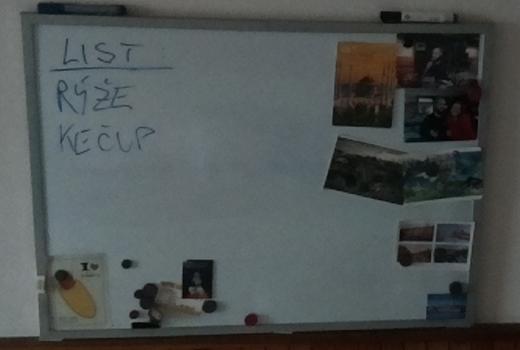 LIST
RÝŽE
KEČUP
I ♥